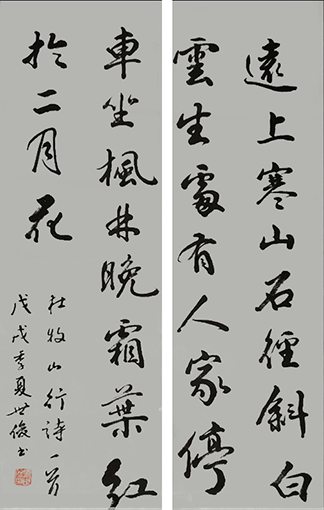 遠上寒山石徑斜白
雲生處有人家停
車坐楓林晚霜葉紅
於二月花
杜牧山行詩一首
戊戌季夏世俊書